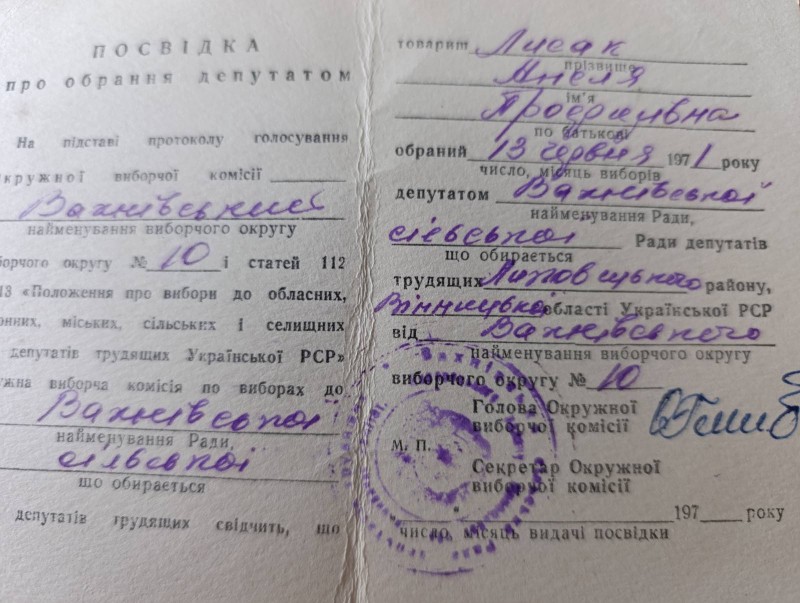 ПОСВІДКА
про обрання депутатом
На підставі протоколу голосування
кружної виборчої комісії
Вахнівський
найменування виборчого округу
борчого округу № 10 і статей 112
13 «Положення про вибори до обласних,
онних, міських, сільських і селищних
депутатів трудящих Української РСР»
жна виборча комісія по виборах до
Вахнівської
найменування Ради,
сільської
що обирається
депутатів трудящих свідчить, що
товариш Лисак
прізвище
Мнеля
ім'я
по батькові
обраний 13 червня 1971 року
число, місяць виборів
депутатом Вахнівської
найменування Ради,
сільської Ради депутатів
що обирається
трудящих Липовецького району,
Вінницької області Української РСР
від Вахнівського
найменування виборчого округу
виборчого округу № 10
Голова Окружної
виборчої комісії
М. П.
Секретар Окружної
виборчої комісії
197 року
число, місяць видачі посвідки